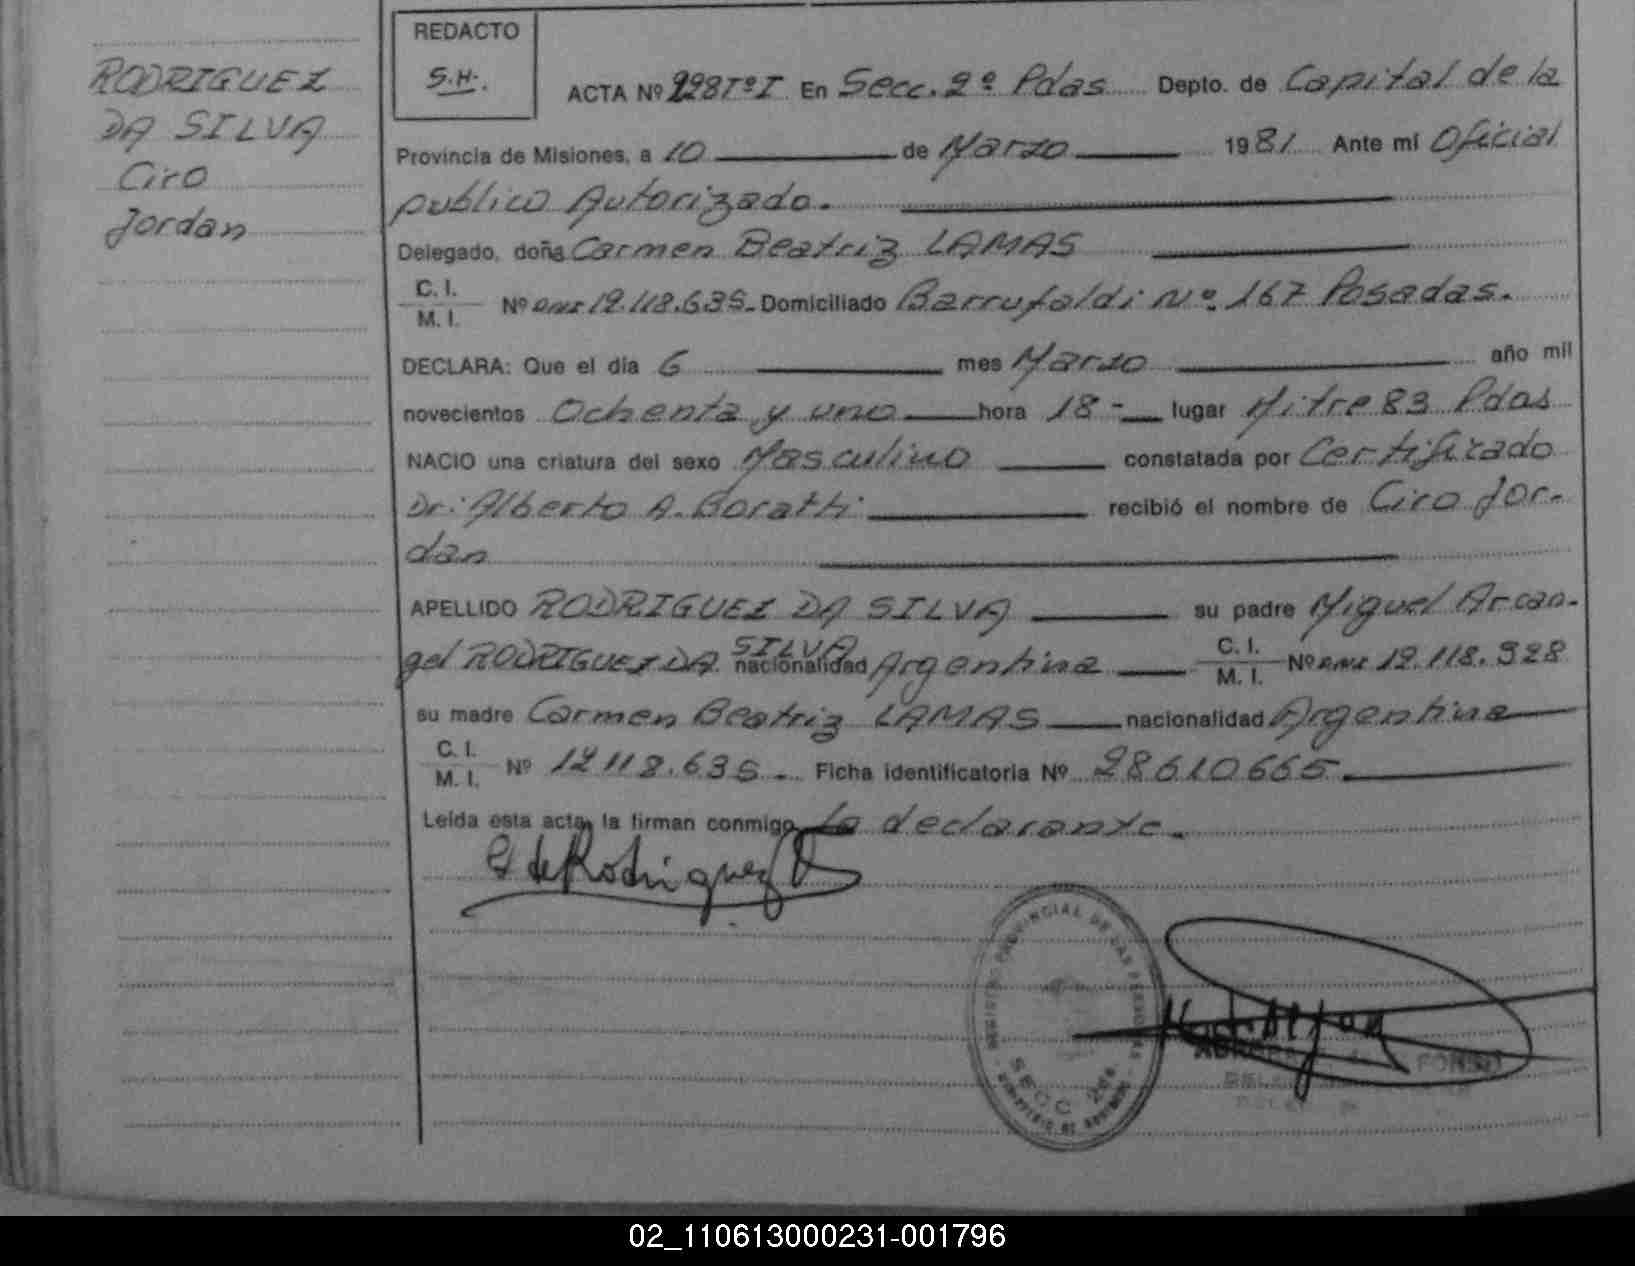 RODRIGUEZ
DA SILVA
Ciro
Jordan
REDACTO
S.H.
ACTA Nº 228TºI En Secc. 2º Pdas Depto. de Capital de la
Provincia de Misiones, a 10 de Marzo 1981 Ante mi Oficial
publico Autorizado.
Delegado, doña Carmen Beatriz LAMAS
C. I.
M. I. Nº DNI 12.118.635. Domiciliado Barrufaldi Nº 167 Posadas.
DECLARA: Que el día 6 mes Marzo año mil
novecientos Ochenta y uno hora 18 - lugar Mitre 83 Pdas
NACIO una criatura del sexo Masculino constatada por Certificado
Dr. Alberto A. recibió el nombre de Ciro Jor-
dan
APELLIDO RODRIGUEZ DA SILVA su padre Miguel Arcan-
gel RODRIGUEZ DA SILVA nacionalidad Argentina C. I.
M. I. Nº DNI 12.118.328
su madre Carmen Beatriz LAMAS nacionalidad Argentina
C. I.
M. I. Nº 12 118.635 - Ficha identificatoria Nº 28610665
Leída esta acta, la firman conmigo La declarante.
de Rodriguez
REGISTRO PROVINCIAL DE LAS PERSONAS
SECC 2da
02_110613000231-001796